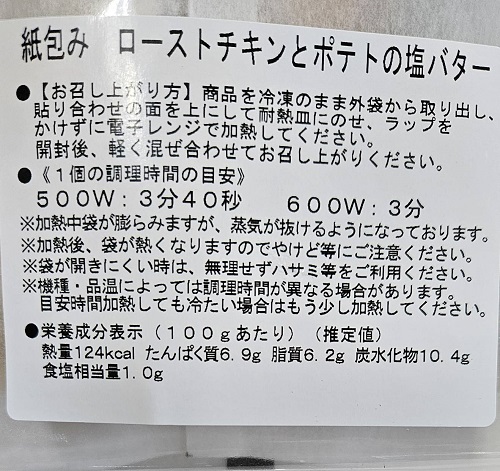 紙包み　ローストチキンとポテトの塩バター
●【お召し上がり方】商品を冷凍のまま外袋から取り出し、
貼り合わせの面を上にして耐熱皿にのせ、ラップを
かけずに電子レンジで加熱してください。
開封後、軽く混ぜ合わせてお召し上がりください。
●《１個の調理時間の目安》
５００Ｗ：３分４０秒　　６００Ｗ：３分
※加熱中袋が膨らみますが、蒸気が抜けるようになっております。
※加熱後、袋が熱くなりますのでやけど等にご注意ください。
※袋が開きにくい時は、無理せずハサミ等をご利用ください。
※機種・品温によっては調理時間が異なる場合があります。
目安時間加熱しても冷たい場合はもう少し加熱してください。
●栄養成分表示（１００ｇあたり）（推定値）
熱量124kcal たんぱく質6.9g 脂質6.2g 炭水化物10.4g
食塩相当量1.0g